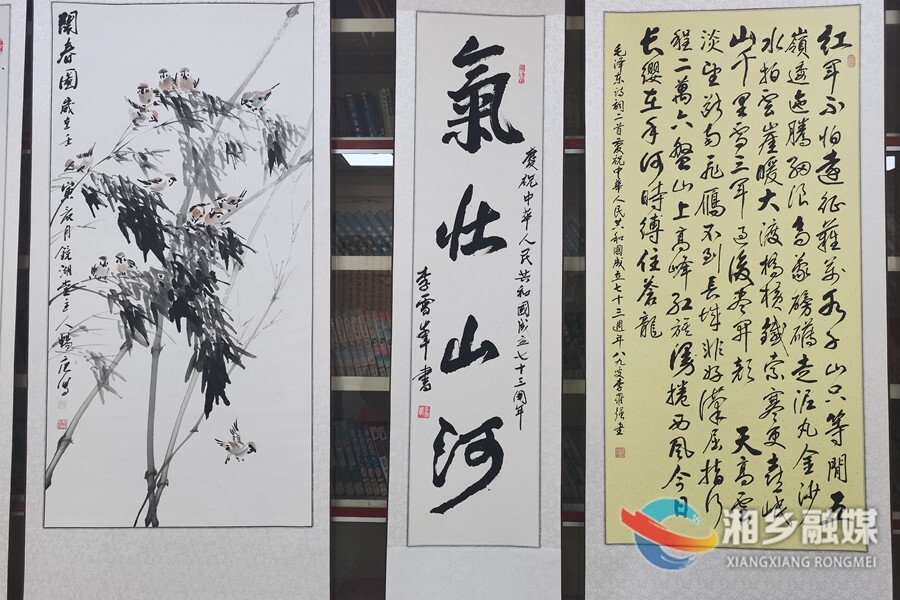 鬧春圖歲在壬寅辰月鏡湖堂主人
氣壯山河
慶祝中華人民共和國成立七十三周年
李雪峯書
红军不怕遠征難萬水千山只等閒五
嶺逶迤騰細浪烏蒙磅礴走泥丸金沙
水拍雲崖暖大渡橋橫鐵索寒更喜岷
山千里雪三军過後盡開顏 天高雲
淡望斷南飛雁不到長城非好漢屈指行
程二萬六盤山上高峰红旗漫捲西風今日
長纓在手何時縛住蒼龍
毛泽东诗词二首慶祝中华人民共和國成立七十三週年八九叟李
湘乡融媒
XIANGXIANG RONGMEI